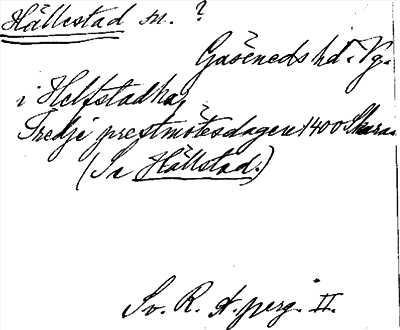 Hällestad sn. ?
Gäseneds hd. Vg.
i Helfstadha
Tredje prestmötesdagen 1400 Skara.
(Se Hällstad.)
Sv. R. A. perg. II.